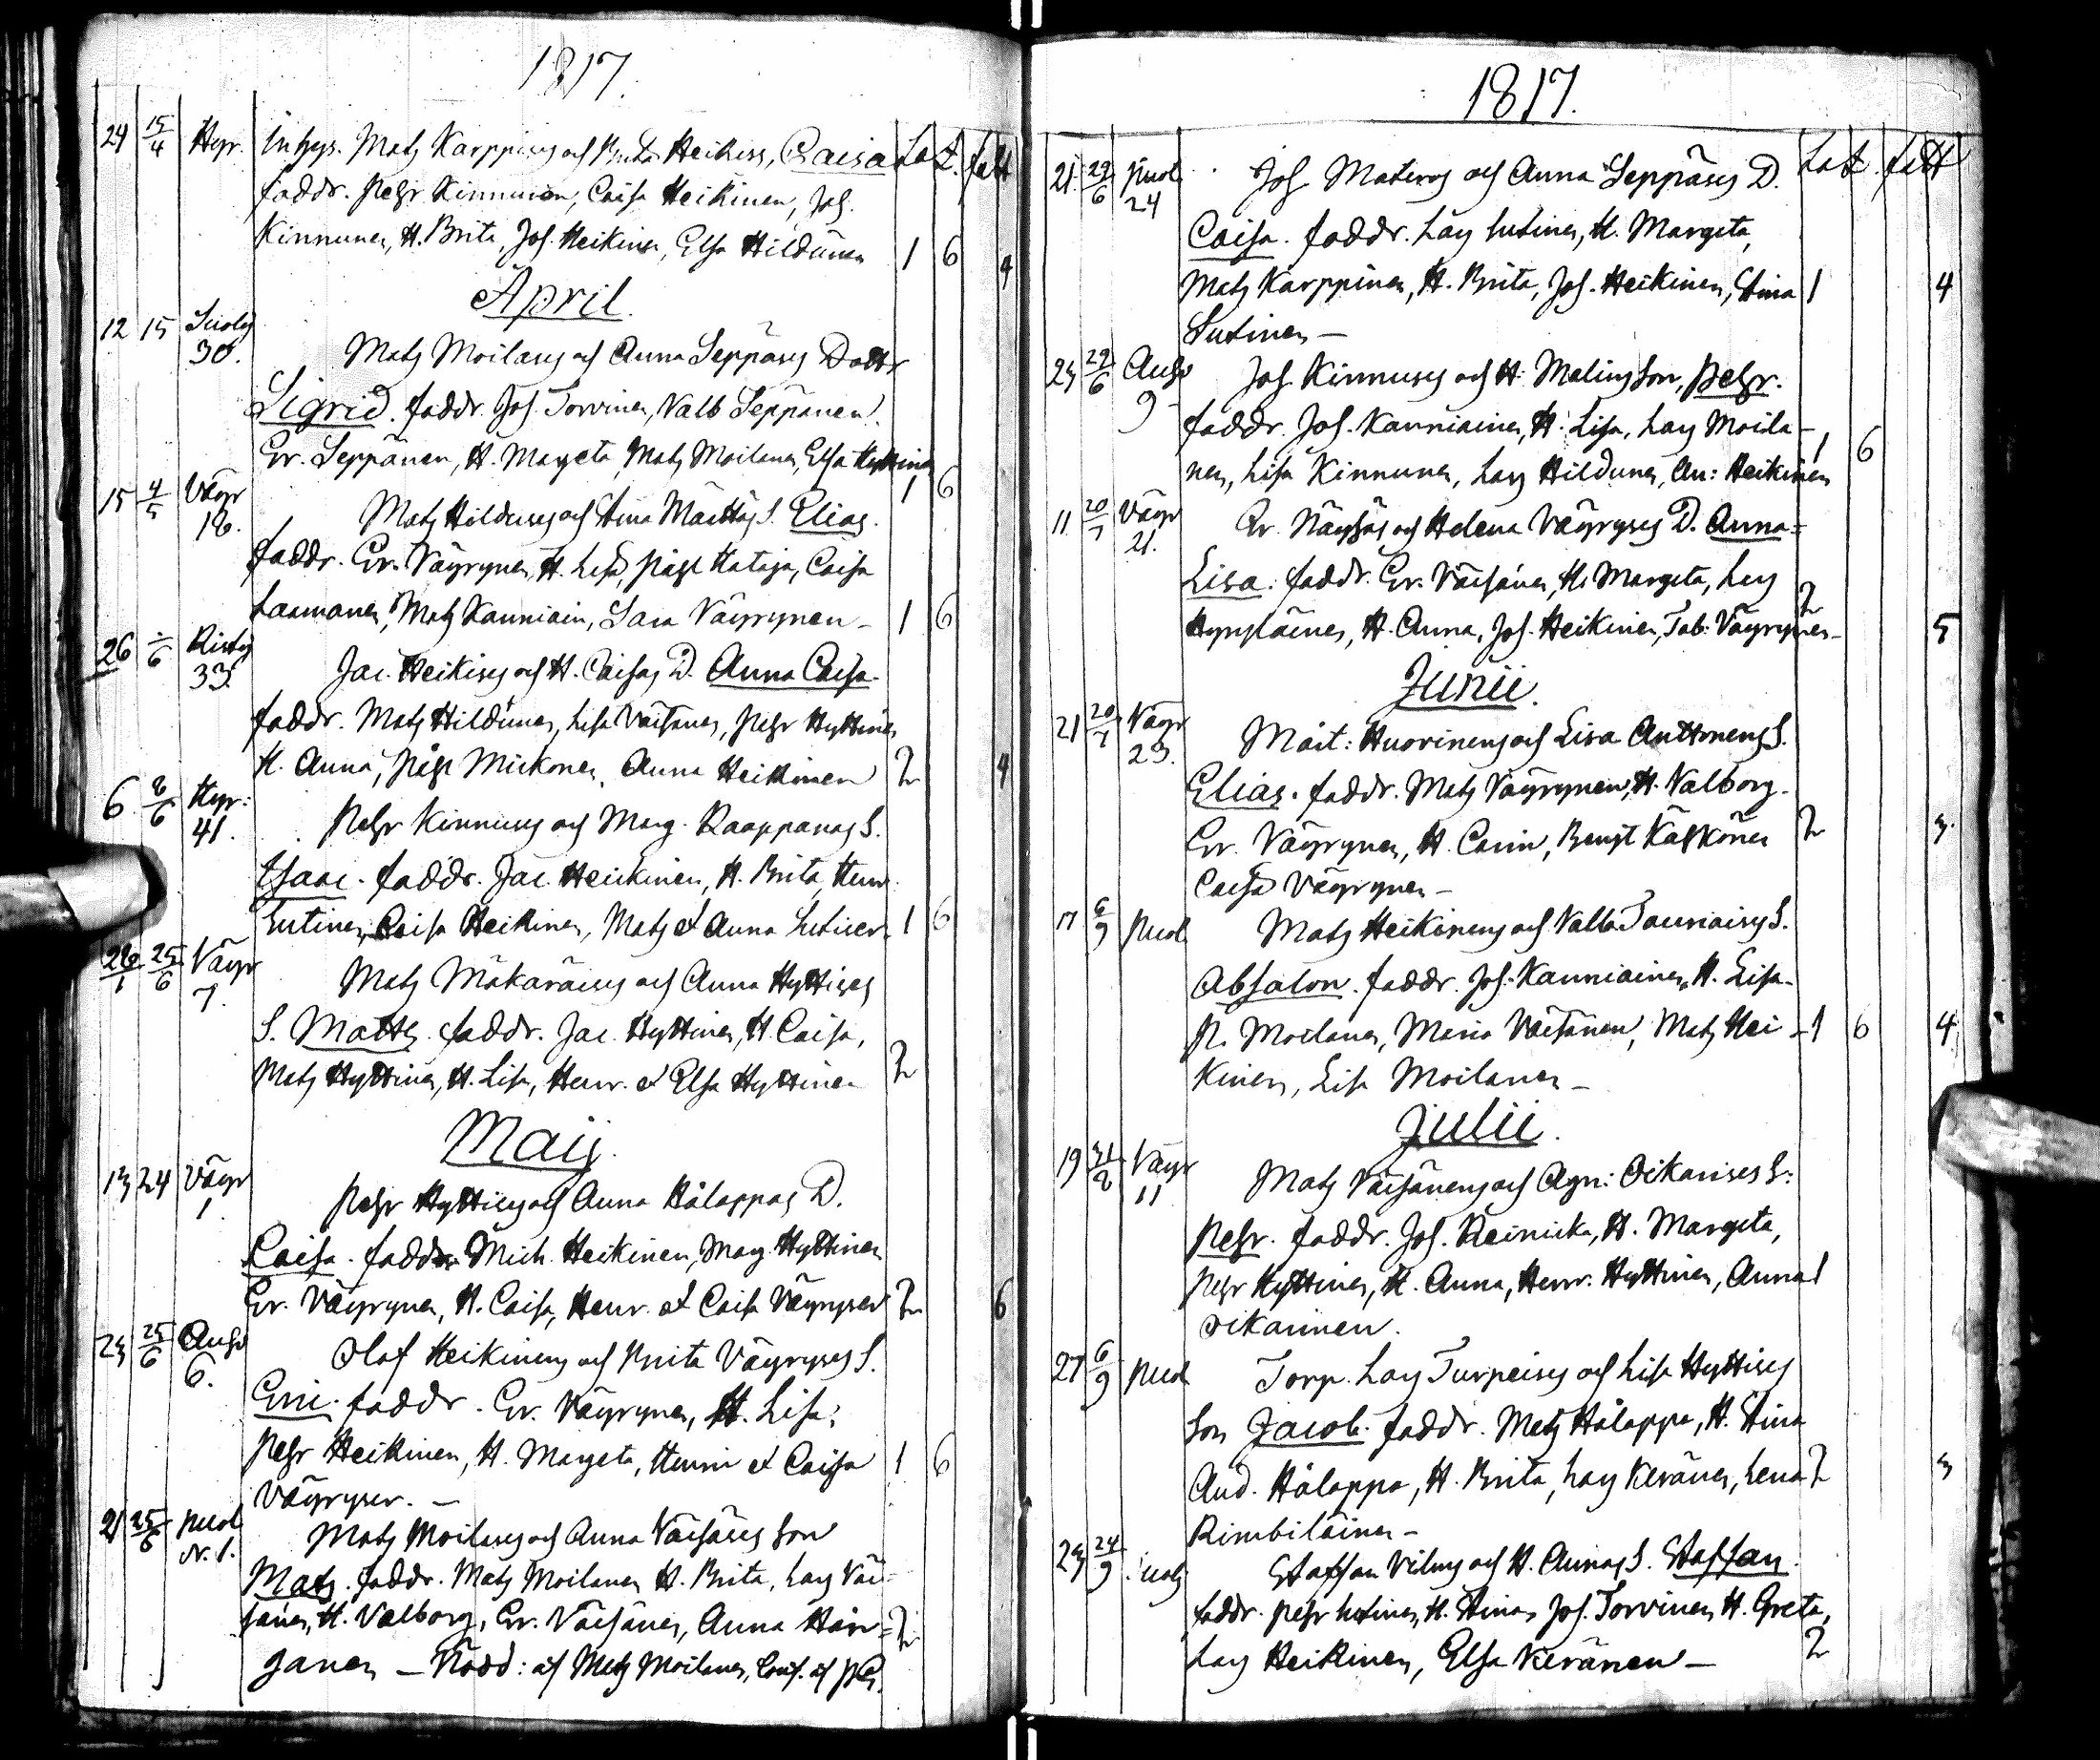 1817.
24 15/4 Hyr. Inhys. Matz Karppinens och Brita Heikins, Caisa Lat. fatt
faddr. Pehr Kinnunen, Caisa Heikinen, Joh.
Kinnunen, H. Brita, Joh. Heikinen, Elsa Hildunen 1 6 4
April.
12 15 Suolij
30. Matz Moilanens och Anna Seppänens Dotter
Sigrid. faddr. Joh. Torvinen, Valb Seppänen.
Er. Seppänen, H. Margeta, Matz Moilanen, Elsa 1 6
15 4/5 Väyr
18. Matz Hildunens och Stina Määttäs S. Elias.
faddr. Er. Väyrynen, H. Lisa, Påhl Hataja, Caisa
Laamanen, Matz Kauniain, Sara Väyrynen – 1 6
26 /6 Ristij
33. Jac. Heikinens och H. Caisas D. Anna Caisa.
faddr. Matz Hildunen, Lisa Väisänen, Pehr Hyttinen
H. Anna, Påhl Mickonen, Anna Heikinen 2 4
6 8/6 Hyr:
41. Pehr Kinnunens och Marg. Kaappanas S.
Isaac. faddr. Jac. Heickinen, H. Brita, Henr.
Lutinen, Caisa Heikinen, Matz et Anna Lutinen. 1 6
26/1 25/6 Väyr
7. Matz Mäkäräinens och Anna Hyttinens
S. Matts. faddr. Jac. Hyttinen, H. Caisa,
Matz Hyttinen, H. Lisa, Henr. et Elsa Hyttinen 2
Maij.
13 24 Väyr
1. Pehr Hyttinens och Anna Hålappas D.
Caisa. faddr. Mich. Heikinen, Marg. Hyttinen
Er. Väyrynen, H. Caisa, Henr. et Caisa Väyrynen 2 6
23 25/6 Anso
6. Olof Heikinens och Brita Väyrynens S.
Eric. faddr. Er. Väyrynen, H. Lisa,
Pehr Heikinen, H. Margeta, Henric et Caisa 1 6
Väyrynen. –
21 25/6 Puol
N. 1. Matz Moilanens och Anna Väisänens Son
Matz. faddr. Matz Moilanen, H. Brita, Lars Väi-
sänen, H. Valborg, Er. Väisänen, Anna Hän= 2
ganen – Nödd: af Matz Moilanen, Conf. af
1817.
21. 29/6 Puol
24 Joh Materos och Anna Seppänens D. Lat. fatt
Caisa. faddr. Lars Lutinen, H. Margeta,
Matz Karppinen, H. Brita, Joh. Heikinen, Stina 1 4
Lutinen –
23 29/6 Anso
9 Joh. Kinnunens och H. Malins Son, Pehr.
faddr. Joh. Kauniainen, H. Lisa, Lars Moila-
nen, Lisa Kinnunen, Lars Hildunen, An: Heikinen 1 6
11 20/7 Väyr
21. Er. Näyhäs och Helena Väyrynens D. Anna=
Lisa. faddr. Er. Väisänen, H. Margeta, Lars
Hyrysläinen, H. Anna, Joh. Heikinen, Tab: Väyrynen – 2 5
Junii.
21 20/7 Väyr
23. Mårt: Huorinens och Lisa Anttonens S.
Elias. faddr. Matz Väyrynen, H. Valborg.
Er. Väyrynen, H. Carin, Bengt Käkkönen 2 3.
Caisa Väyrynen –
17 6/9 Puol Matz Heikinens och Valb. Tauriainens S.
Absalon. faddr. Joh. Kauniainen, H. Lisa.
P. Moilanen, Maria Väisänen, Matz Hei- 1 6 4
kinen, Lisa Moilanen –
Julii.
19 31/8 Väyr
11 Matz Väisänens och Agn: Oikarinens S:
Pehr. faddr. Joh. Keinicka, H. Margeta,
Pehr Hyttinen, H. Anna, Henr. Hyttinen, Anna 1
Oikarinen.
27 6/9 Puol Torp. Lars Turpeinens och Lisa Hyttinens
Son Jacob. faddr. Matz Hålappa, H. Stina
And. Hålappa, H. Brita, Lars Keränen, Lena 2 3
Rimbiläinen –
23 24/9 Suolij Staffan Vilmis och H. Annas S. Staffan.
faddr. Pehr Lutinen, H. Stina, Joh. Torvinen, H. Greta,
Lars Heikinen, Elsa Keränen – 2